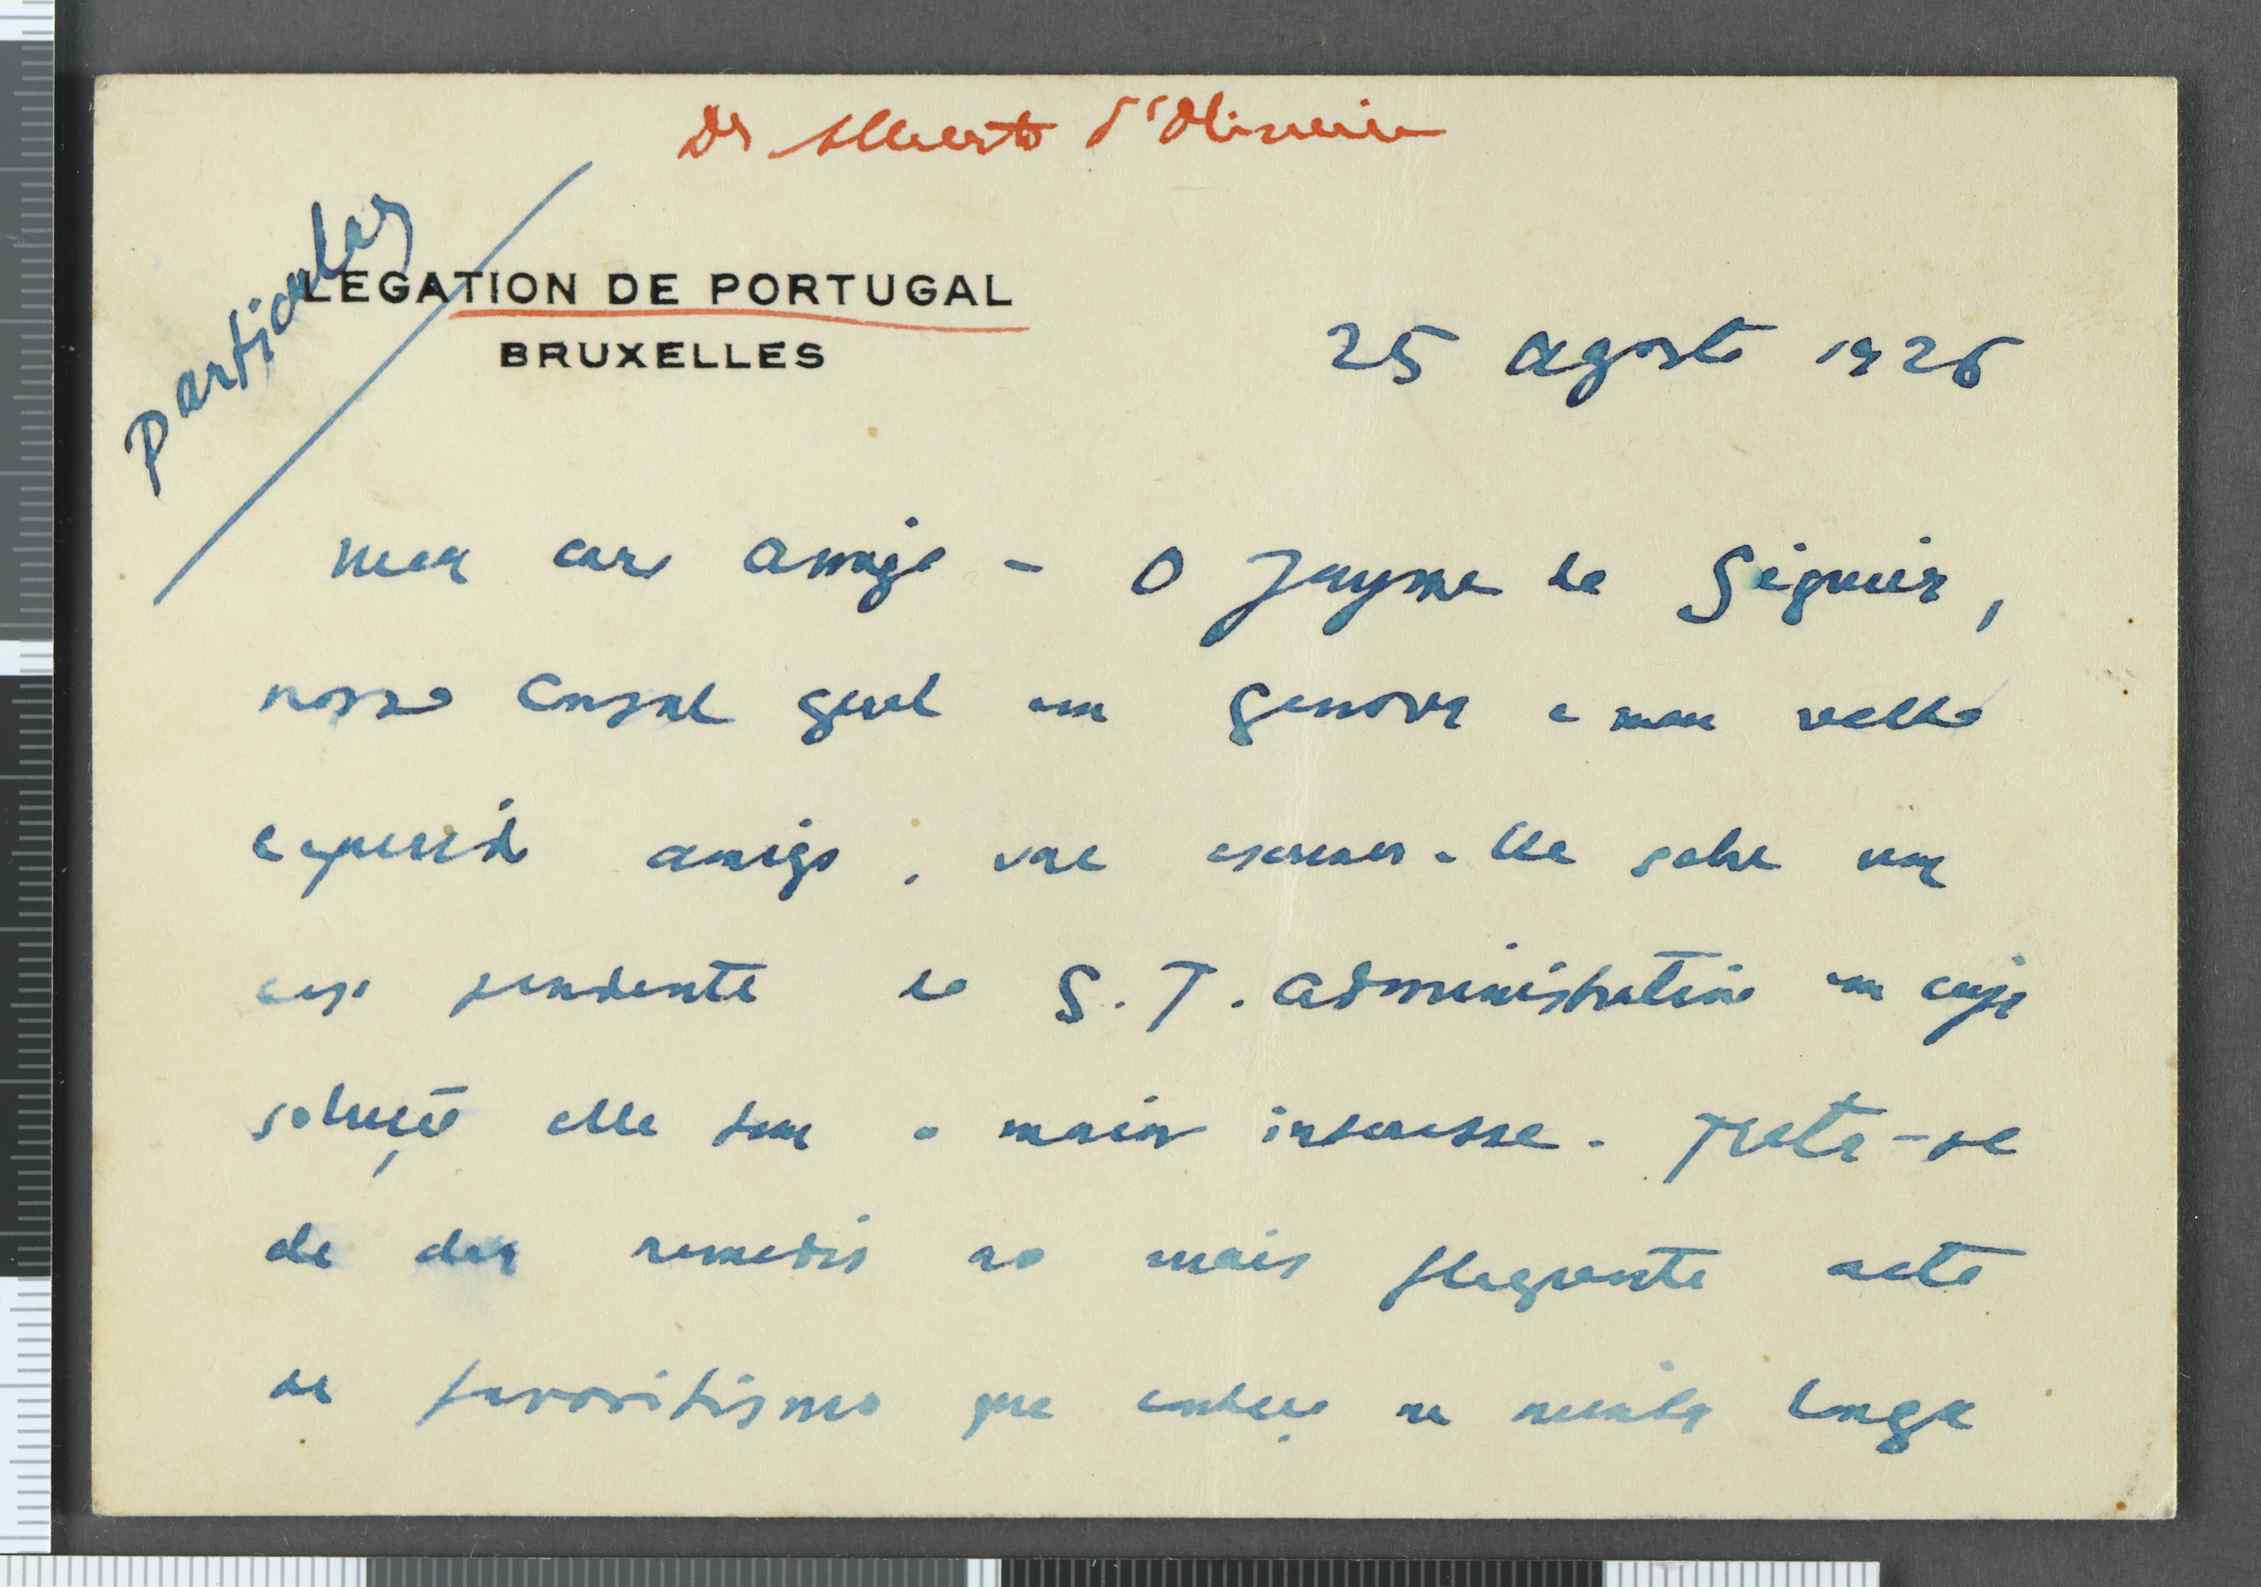 Dr Alberto d'Oliveira
particular
LEGATION DE PORTUGAL
BRUXELLES
25 agosto 1926
Meu caro amigo - O Jayme de Séguier,
nosso Consul geral em Genova e meu velho
e querido amigo, vae escrever-lhe sobre um
caso pendente do S. T. Administrativo em cuja
solução elle tem o maior interesse. Trata-se
de dar remedio ao mais flagrante acto
de favoritismo que conheço na minha longa